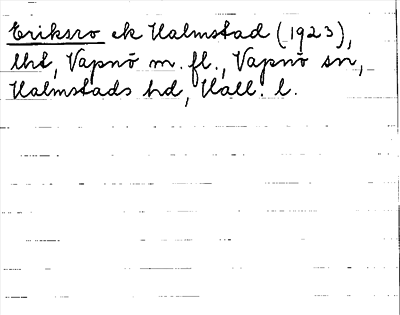 Eriksro ek Halmstad (1923),
lht, Vapnö m. fl., Vapnö sn,
Halmstads hd, Hall. l.